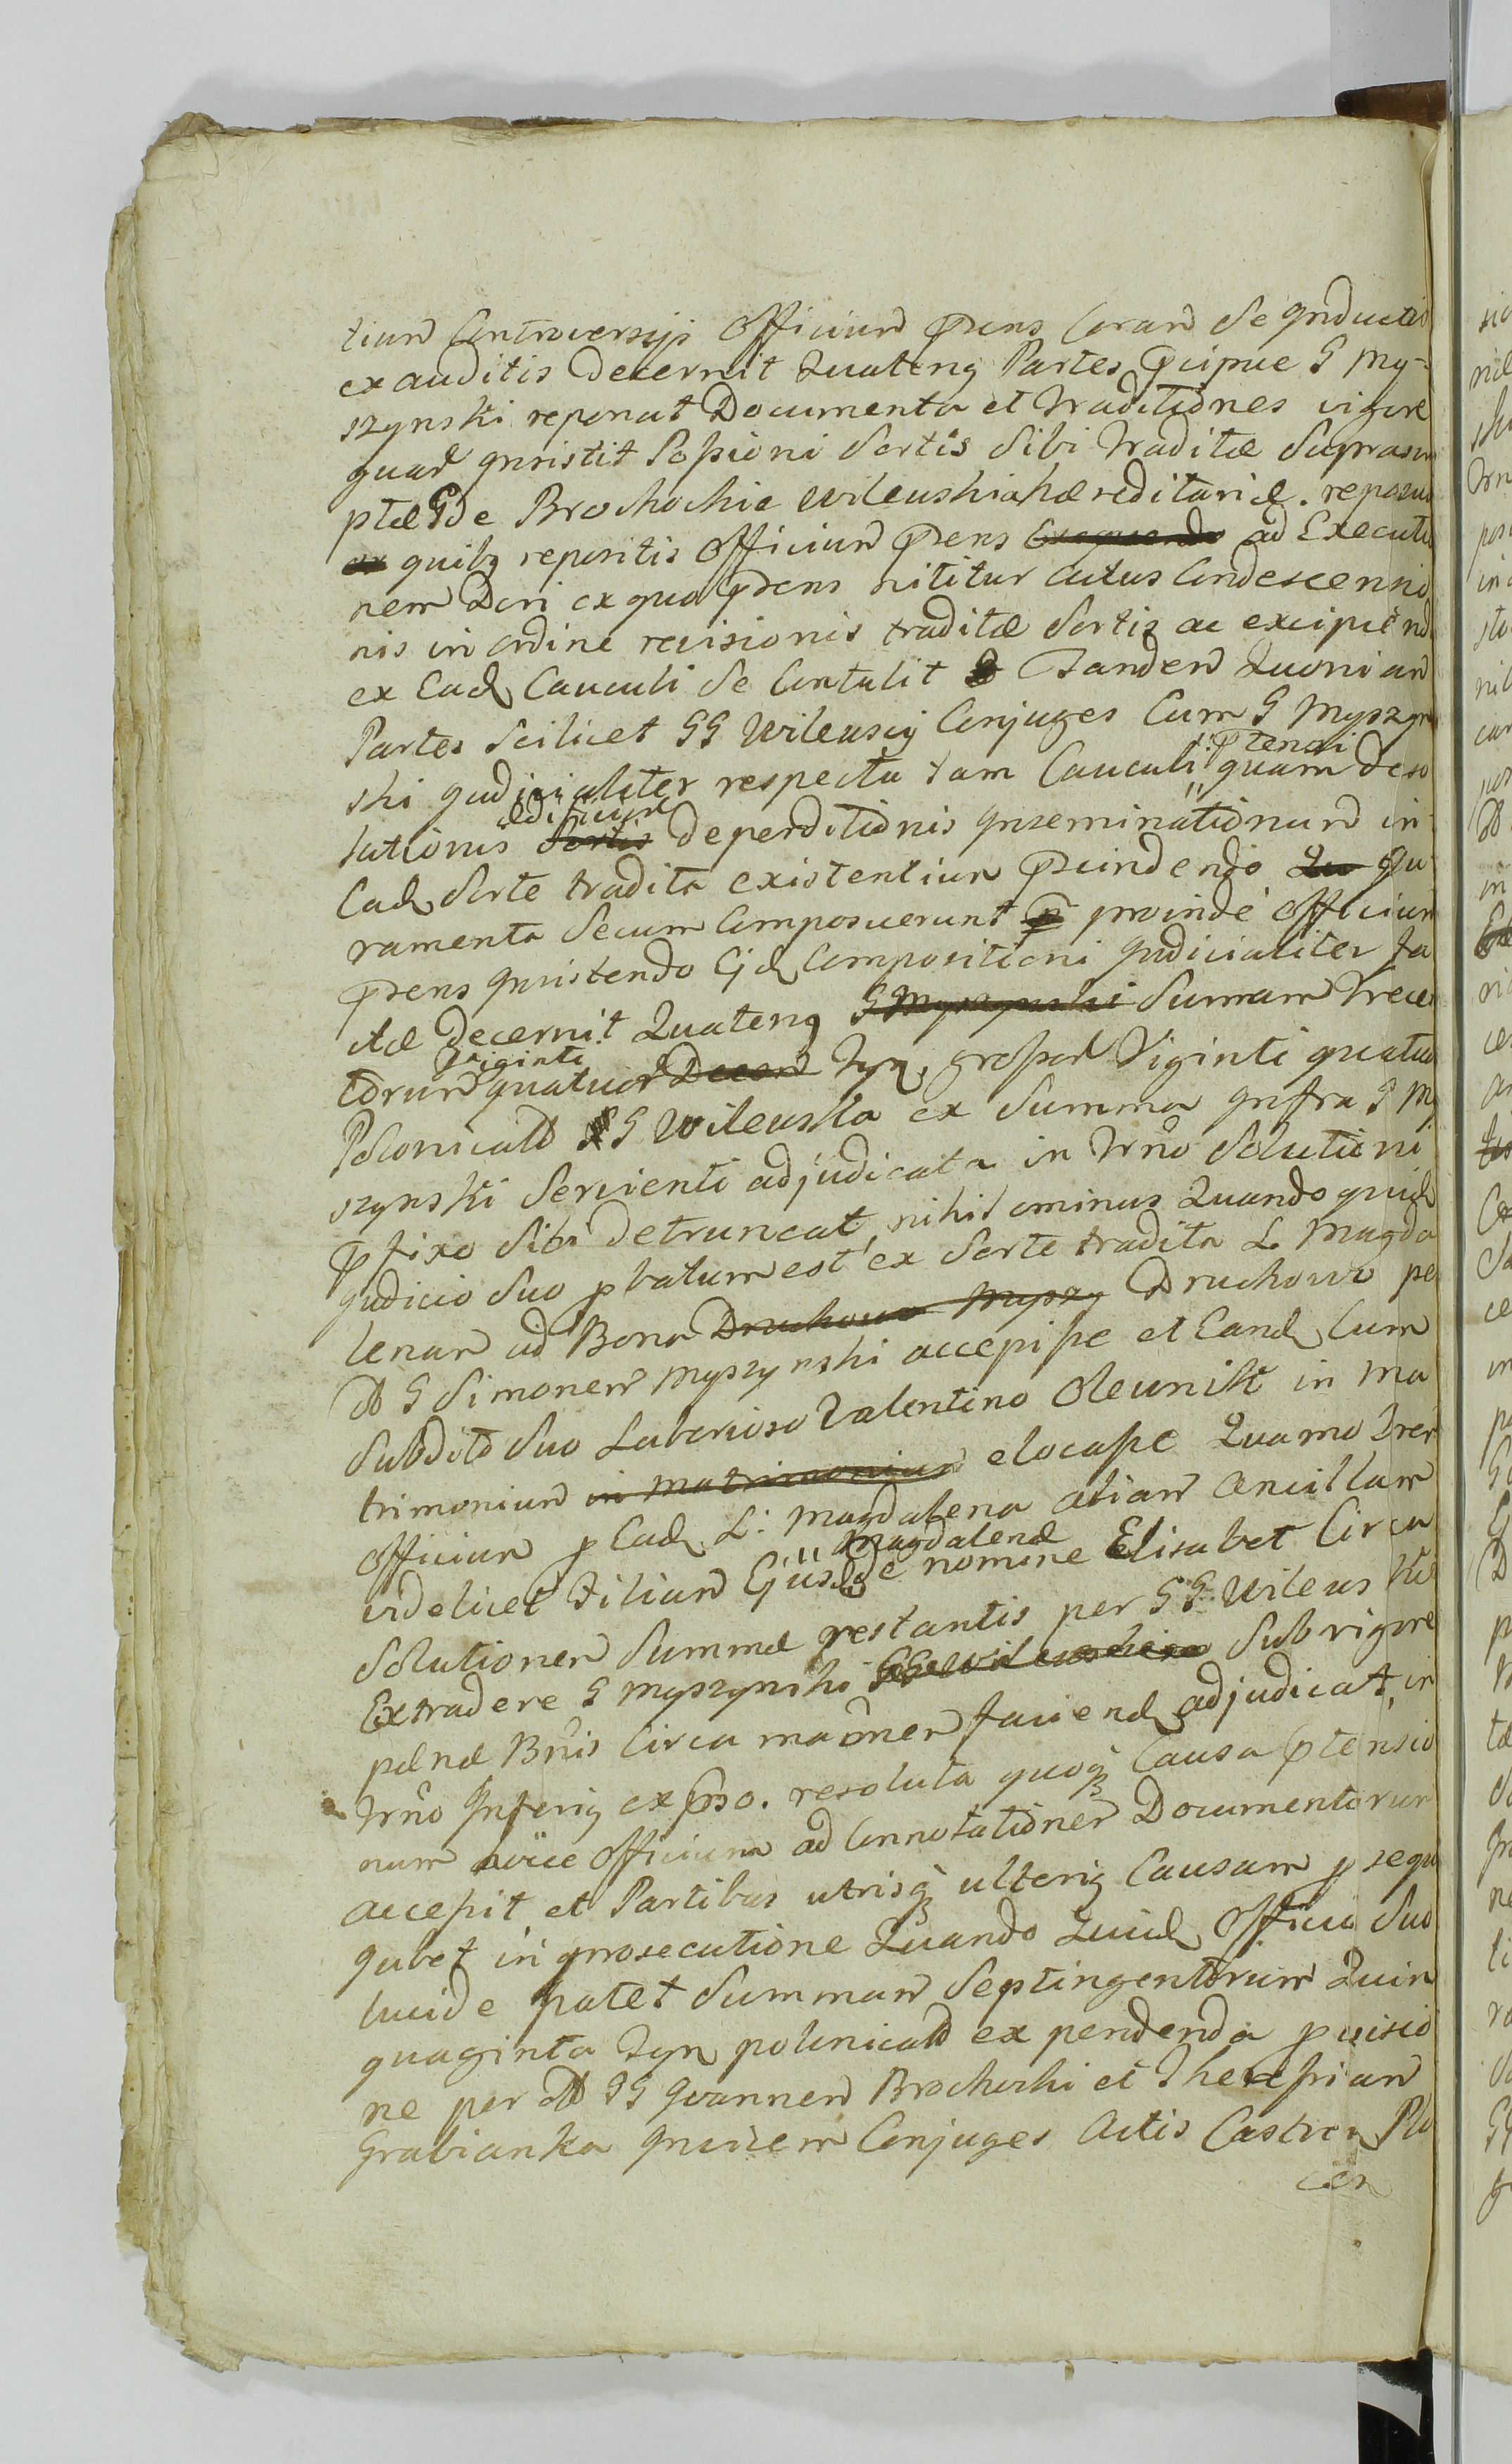 tium Controversijs Officium Prns Coram Se Inductio
exauditis Decernit Quateng Partes Pcipue G My-
szynski reponat Documenta et Traditiones vigore
quar Insistit Possioni Sortis Sibi Traditæ Suprascri
ptæ G de Brochochie Wilewskia hæreditariæ. reposuit
quibg repositis Officium Prns ad Executio
nem Dcri ex quo Prns nititur Actus Condescensio
nis in ordine revisionis traditæ Sortis ac excipiend
ex Ead Cauculi Se Contulit Tandem Quoniam
Partes Scilicet GG Wilewscij Conjuges Cum G Myszyn
ski Judicialiter respectu tam Cauculi Ptensi quam deso
lationis ædificiorum Sortis deperditionis Inseminationum in
Ead Sorte tradita existentium Pscindendo Qu Ju
ramenta Secum Composuerunt proinde Officium
Prns Insistendo Ejd Compositioni Judicialiter fa
ctæ Decernit Quateng G Myszynski Sumam Trecen
torum Viginti quatuor Decem Fpn, grossor Viginti quatuor
Polonicald G Wilewska ex Summa Infra G My
szynski Servienti adjudicata in Trno Solutioni
Pfixo Sibi Detruncat, nihilominus Quandoquid
Judicio Suo pbatum est ex Sorte tradita L Magda
lenam ad Bona Druchowo Myszy Druchowo pe
M G Simonem Myszynski accepisse et Eand Cum
Subdito Suo Laborioso Valentino Olewnik in ma
trimonium in Matrimonium elocasse Quamobrem
Officium p Ead L: Magdalena aliam Ancillam
videlicet Filiam Ejusd Magdalenæ de nomine Elisabet Circa
Solutionem Summæ restantis per GG Wilews kie
Extradere G Myszynski GG Wilewskiem Sub rigore
pænæ Bnis Circa maonem faciend adjudicat, in
Trno Inferig expsso. resoluta quoq Causa Ptensio
num hocce Officium ad Connotationem Documentorum
accepit, et Partibus utrisq ulterig Causam psequi
Jubet in prosecutione Quando Quid Officio Suo
lucide patet Summam Septingentorum Quin
quaginta Fpn polonicald ex pendenda pvisio
ne per M GG Joannem Brochocki et Theressiam
Grabianka Invicem Conjuges Actis Castren Plo
cen